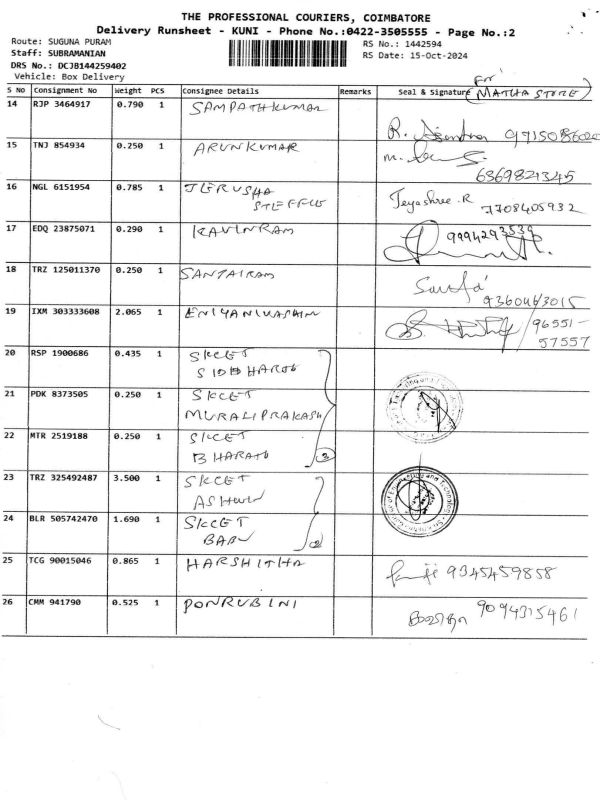 THE PROFESSIONAL COURIERS, COIMBATORE
Delivery Runsheet - KUNI - Phone No.:0422-3505555 - Page No.:2
Route: SUGUNA PURAM
RS No.: 1442594
Staff: SUBRAMANIAN
RS Date: 15-Oct-2024
DRS No.: DCJB144259402
Vehicle: Box Delivery
S No Consignment No Weight PCS Consignee Details Remarks Seal & Signature (MATHA STORE)
14 RJP 3464917 0.790 1 SAMPATHKUMAR
R. 
15 TNJ 854934 0.250 1 ARUNKUMAR
6369821345
16 NGL 6151954 0.785 1 JERUSHA Jeyashree.R
STEFFIE 7708405932
17 EDQ 23875071 0.290 1 KAVINRAM 9994293539
18 TRZ 125011370 0.250 1 SANJAIRAM
9360463015
19 IXM 303333608 2.065 1 96551-
57557
20 RSP 1900686 0.435 1 SKCET
SIDDHARTH
21 PDK 8373505 0.250 1 SKCET
MURALIPRAKASH
22 MTR 2519188 0.250 1 SKCET
BHARATH 3
23 TRZ 325492487 3.500 1 SKCET
ASHWIN
24 BLR 505742470 1.690 1 SKCET
BABU 2
25 TCG 90015046 0.865 1 HARSHITHA 9345459858
26 CMM 941790 0.525 1 PONRUBINI 9094315461